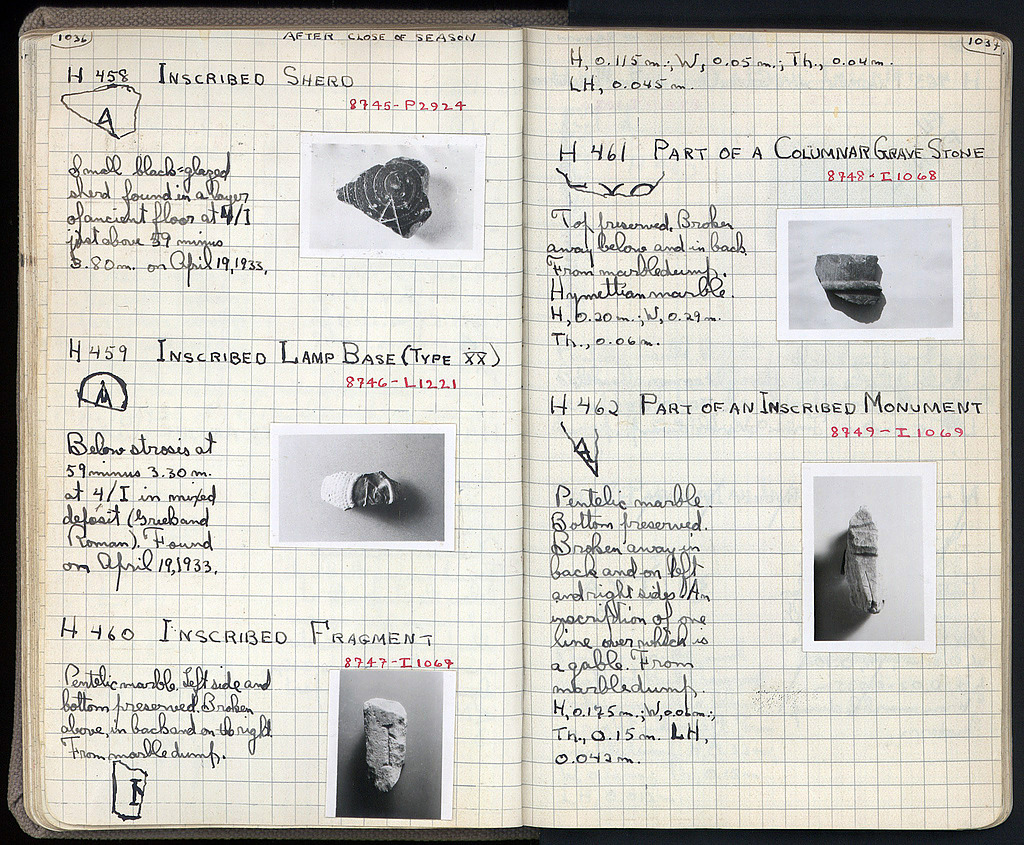 1036
AFTER CLOSE OF SEASON
H 458 INSCRIBED SHERD
8745-P2924
A
Small black-glazed
sherd found in a layer
of ancient floor at 4/I
just above 59 minus
3.80 m. on April 19, 1933.
H 459 INSCRIBED LAMP BASE (TYPE XX)
8746-L1221
Below strosis at
59 minus 3.30 m.
at 4/I in mixed
deposit (Greek and
Roman). Found
on April 19, 1933.
H 460 INSCRIBED FRAGMENT
8747-I1067
Pentelic marble. Left side and
bottom preserved. Broken
above, in back and on the right
From marble dump.
1037
H, 0.115 m.; W, 0.05 m.; Th., 0.04 m.
LH, 0.045 m.
H 461 PART OF A COLUMNAR GRAVE STONE
8748-I1068
Top preserved. Broken
away below and in back.
From marble dump.
Hymettian marble.
H, 0.20 m.; W, 0.29 m.
Th., 0.06 m.
H 462 PART OF AN INSCRIBED MONUMENT
8749-I1069
Pentelic marble.
Bottom preserved.
Broken away in
back and on left
and right sides. An
inscription of one
line over which is
a gable. From
marble dump.
H, 0.175 m.; W, 0.06 m.;
Th., 0.15 m. LH,
0.042 m.